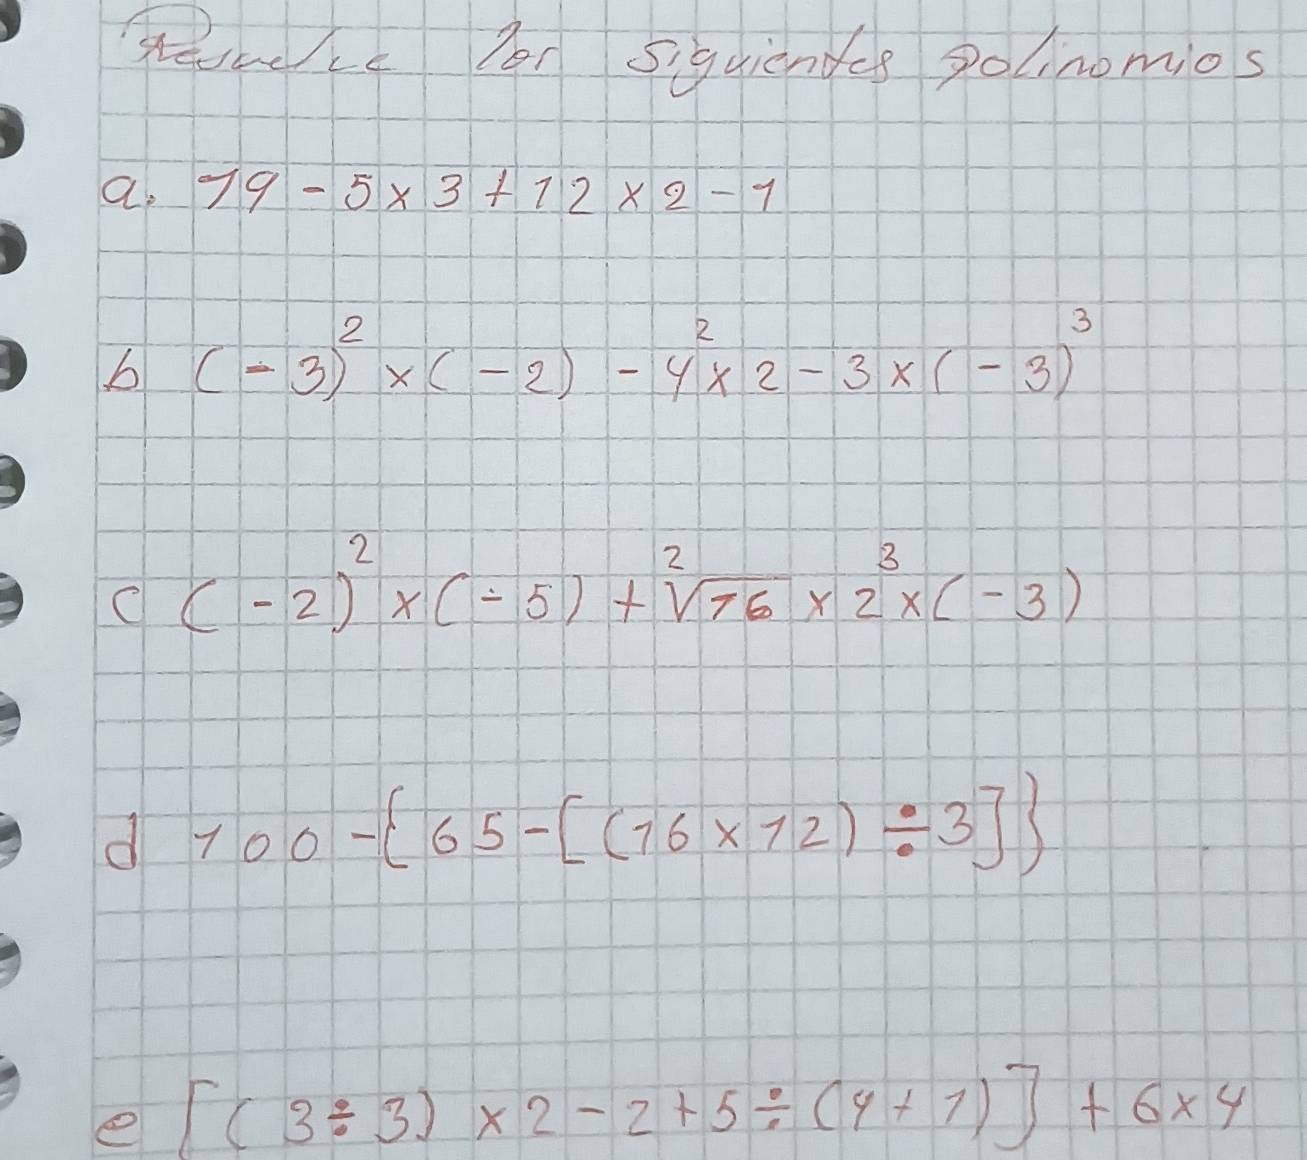 Resuelve los siguientes polinomios
a. 19 - 5 × 3 + 12 × 2 - 1
b (-3)² × (-2) - 4² × 2 - 3 × (-3)³
c (-2)² × (-5) + ²√16 × 2³ × (-3)
d 100 - {65 - [(16 × 12) ÷ 3]}
e [(3 ÷ 3) × 2 - 2 + 5 ÷ (4 + 1)] + 6 × 4